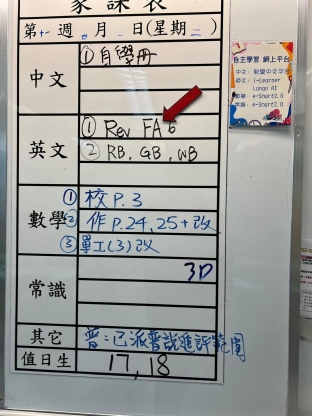 家課表
第十一週 月 日(星期 二)
中文
① 自學冊
英文
① Rev FA 6
② RB, GB, WB
數學
① 校 P.3
② 作 P.24, 25 + 改
③ 單工(3) 改
常識
3D
其它
普:已派普說進評範圍
值日生
17, 18
自主學習 網上平台
中文:
英文: i-Learner
Lango AI
數學: e-Smart2.0
常識: e-Smart2.0